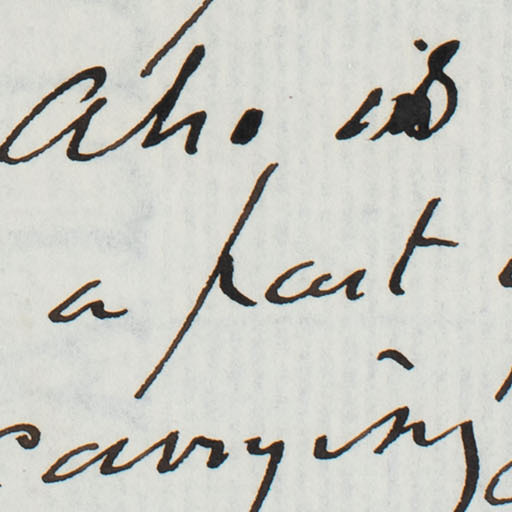 is
a part
carrying